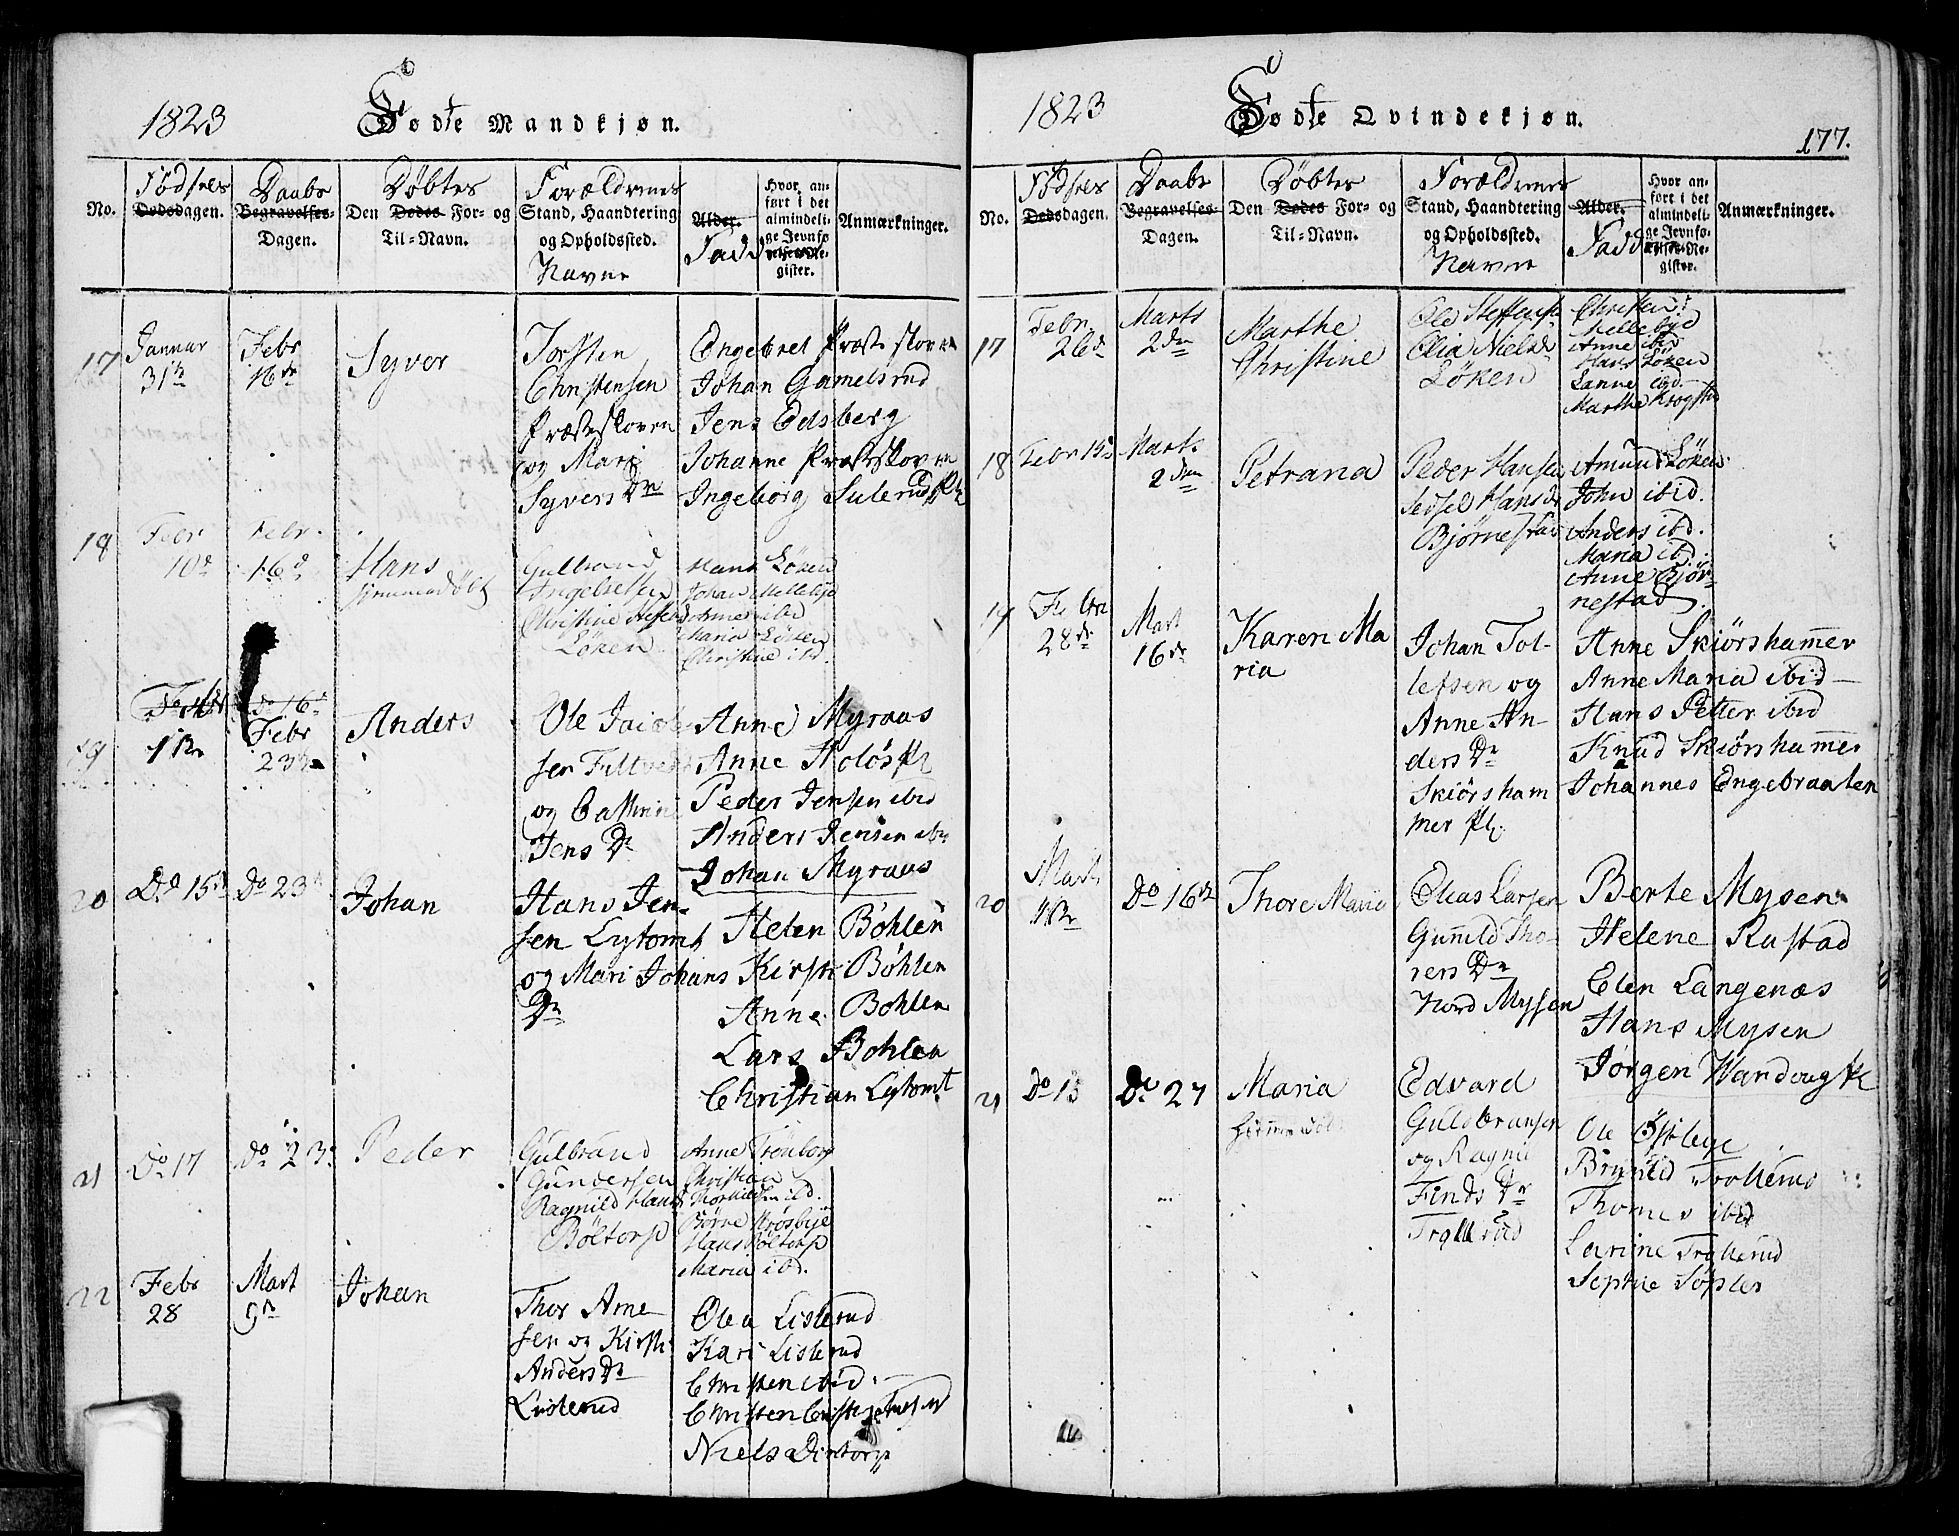 1823
Fødte Mandkjøn.
No.
Fødsels
Dødsdagen.
Daabs
Begravelses-
Dagen.
Døbtes
Den Dødes For- og
Til-Navn.
Forældrenes
Stand, Haandtering
og Opholdssted.
Navne
Alder.
Fadd
Hvor an-
ført i det
almindeli-
ge Jevnfø-
relses-Re-
gister.
Anmærkninger.
17
Januar
31te
Febr
16de
Syver
Torsten
Christensen
Præsteskoven
og Mari
Syvers Dr
Engebret Præsteskoven
Johan Gamelsrud
Jens Edsberg
Johanne Præsteskoven
Ingeborg Sulerud Pl
18
Febr
10d
Febr.
16d
Hans
hjemmedøbt
Gulbrand
Ingelsetsen
Christine
Løken
Hans Løken
Johan Mellebye
ibd
Maria Løken
Christine ibd.
19
Febr
Febr
23de
Anders
Ole Jacob
sen
og Cathrine
Jens Dr
Anne Myraas
Anne Holøs Pl
Peder Jensen ibid
Anders Jensen ibid
Johan Myraas
20
Do 15de
Do 23
Johan
Hans Jen-
sen Lytomt
og Mari Johans
Dr
Helen Bøhlen
Kirsti Bøhlen
Anne Bøhlen
Lars Bøhlen
Christian Lytomt
21
Do 17
Do 23
Peder
Gulbrand
Gundersen
Ragnild Hans
Bøltorp
Anne Trønborg
Christian
Thorkildsen ibd.
Børre Krosbye
Hans Bøltorp
Maria ibd.
22
Febr
28
Mart
9de
Johan
Thor Arne
sen og Kirsti
Anders Dr
Listerud
Olea Listerud
Kari Listerud
Christen ibid.
Christen
Niels Dintorp
1823
Fødte Qvindekjøn.
177.
No.
Fødsels
Dødsdagen.
Daabs
Begravelses-
Dagen.
Døbtes
Den Dødes For- og
Til-Navn.
Forældrenes
Stand, Haandtering
og Opholdssted.
Navne
Alder.
Fadd
Hvor an-
ført i det
almindeli-
ge Jevnfø-
relses-Re-
gister.
Anmærkninger.
17
Febr
26d
Marts
2den
Marthe
Christine
Ole Steffens
Olia Nielsd
Løken
Christian
Mellebyd
Anne ibd
Hans Løken
Lanne ibd
Marthe Krogstad
18
Febr 15
Marts
2den
Petrana
Peder Hansen
Sidsel Hansd
Bjørnestad
Amund Løken
John ibid.
Anders ibd.
Maria ibd.
Anne Bjør-
nestad
19
Febr
28de
Mart
16de
Karen Ma
ria
Johan Tol-
lefsen og
Anne An-
ders Dr
Skiørsham
mer Pl.
Anne Skiørshamer
Anne Maria ibid
Hans Petter ibid
Knud Skiørshamer
Johannes Engebraaten
20
Mart
Do 16de
Thore Marie
Elias Larsen
Gunild Tho-
rers Dr
Nord Mysen
Berte Mysen
Helene Rustad
Elen Langenæs
Hans Mysen
Jørgen Pl
21
Do 15
Do 27
Maria
Edvard
Guldbransen
og Ragnil
Finds Dr
Trollerud
Ole
Brynild Trollerud
Thomes ibid
Larine Trollerud
Sophie